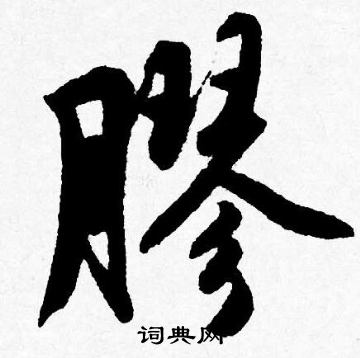 膠
词典网